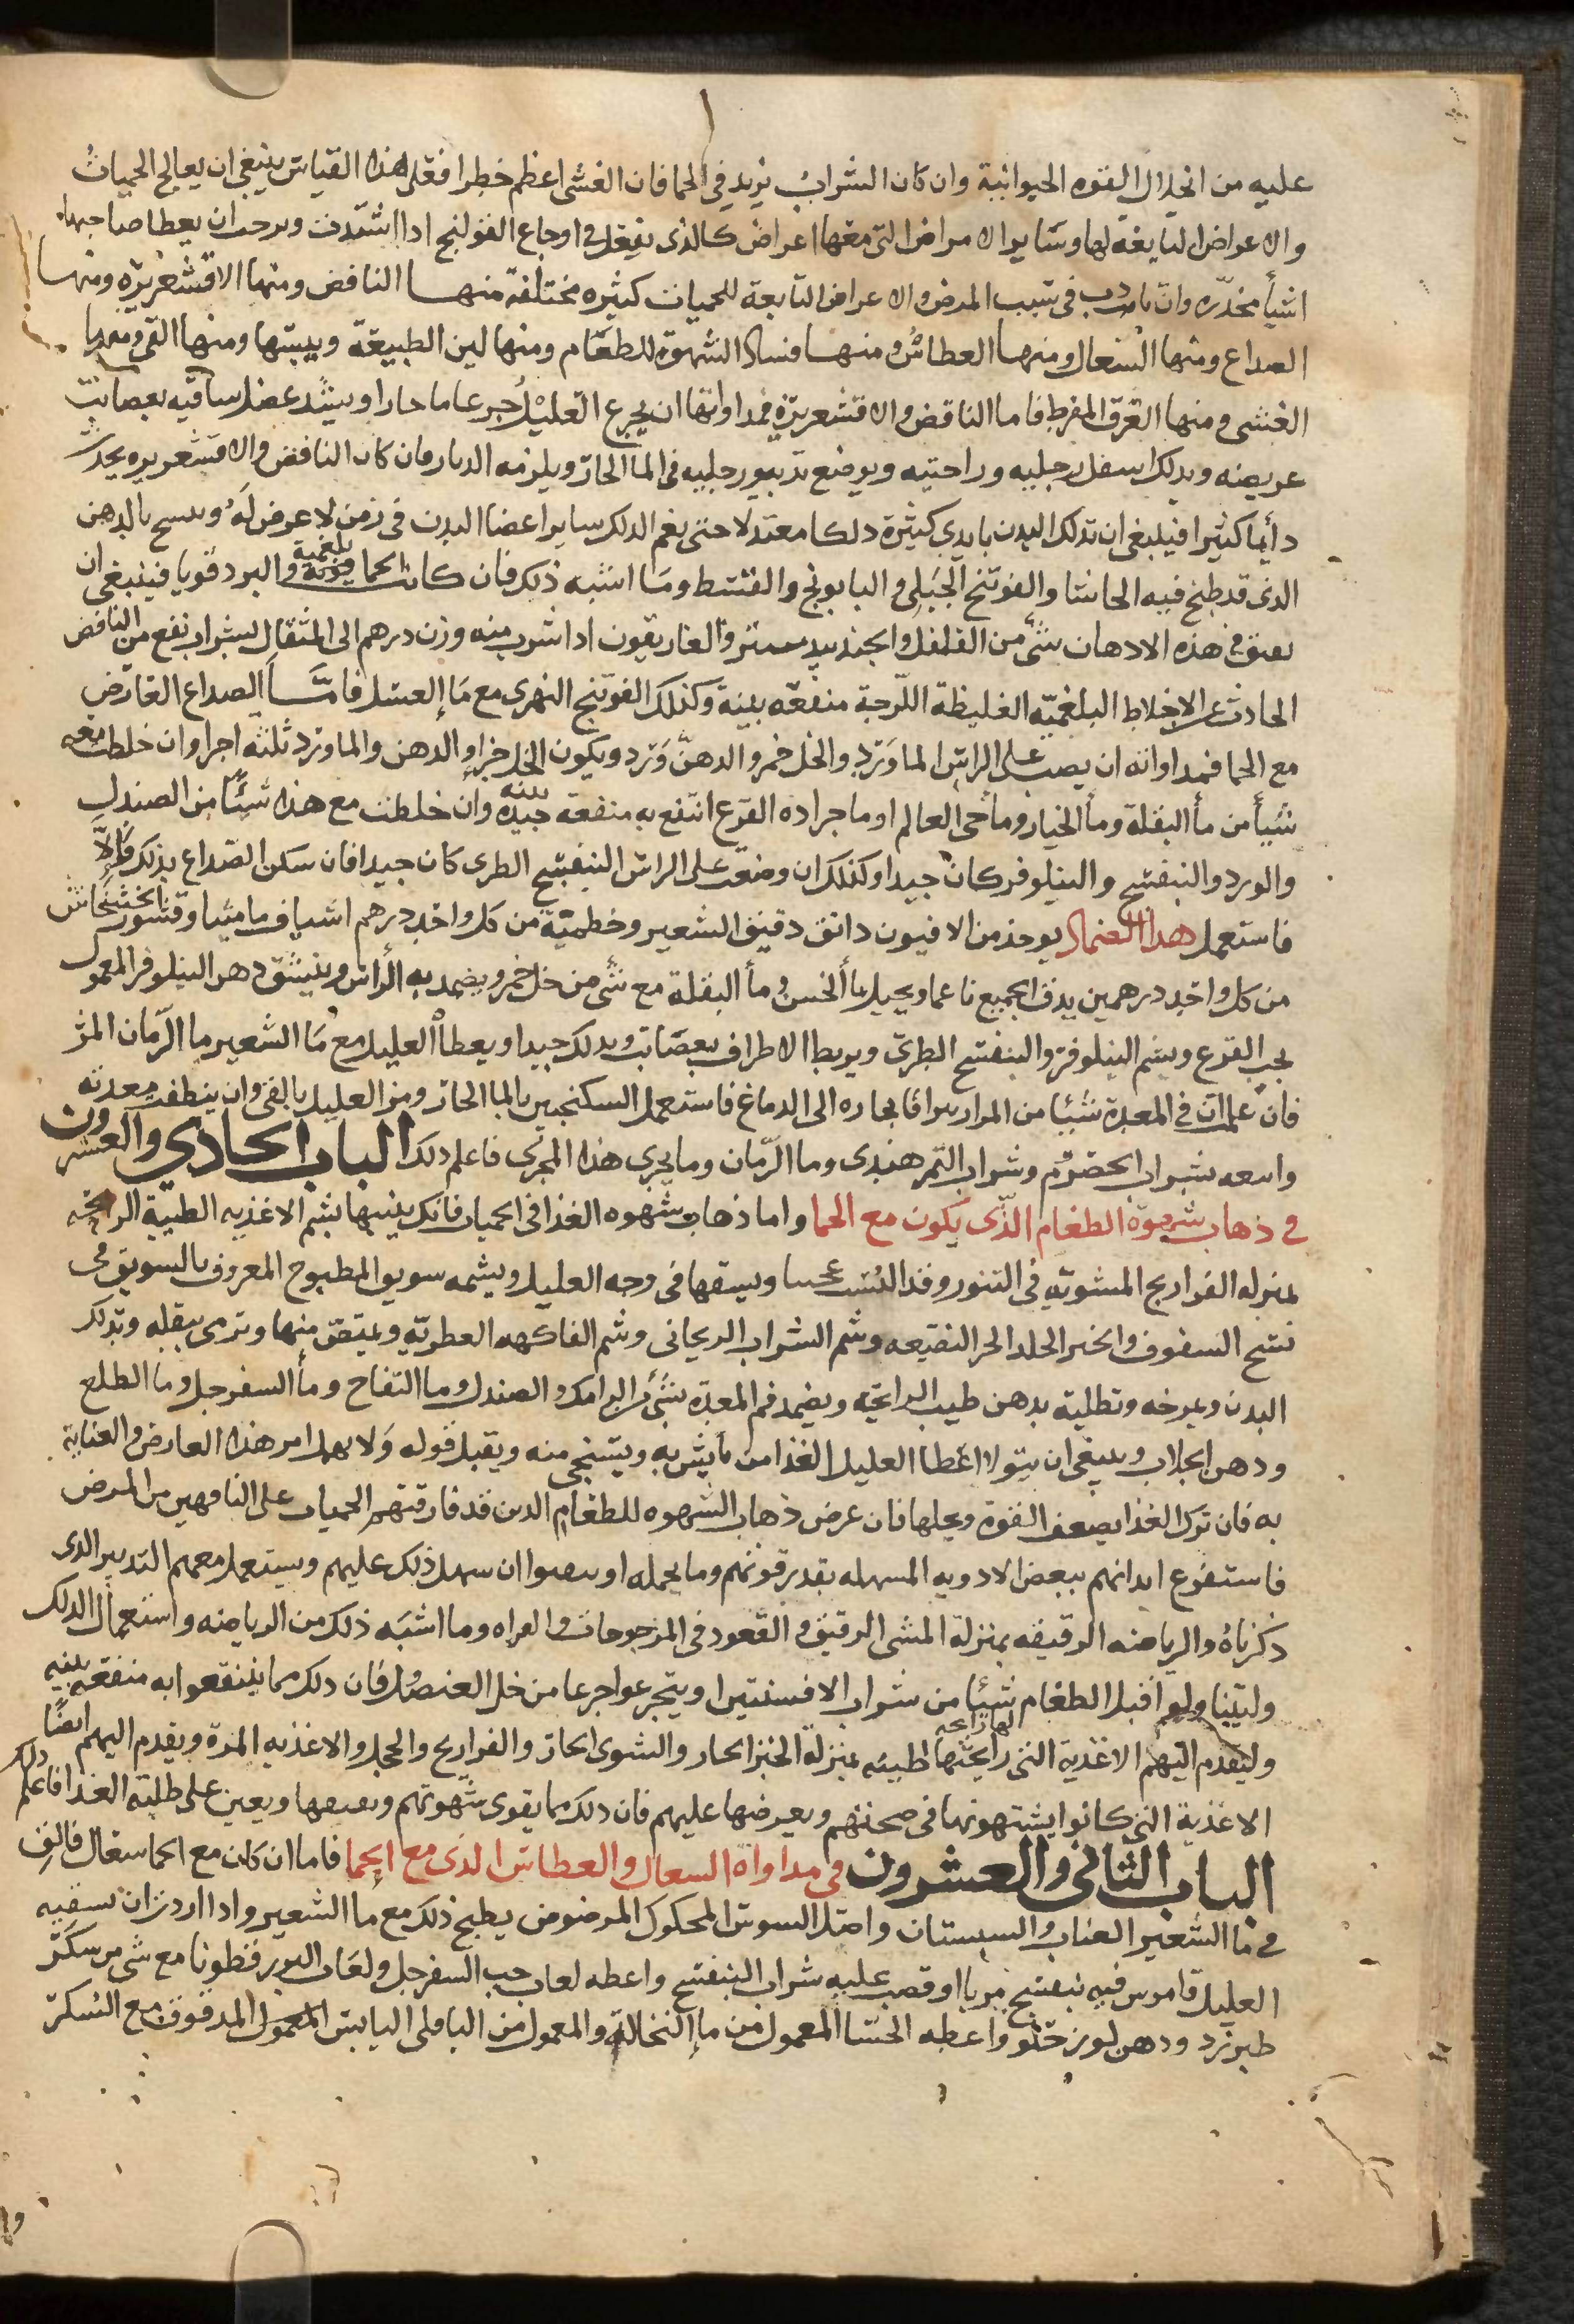 عليه من انحلال القوه الحيوانية وان كان الشراب يزيد في الحما فان الغشى اعظم خطرا فعلى هذا القياس ينبغى ان يعالج الحميات
والاعراض التابعة لها وساير الامراض التى معها اعراض كالذى يفعل في اوجاع القولنج اذا اشتدت وبرحت ان يعطا صاحبها
اشيأ مخدره وان زادت في سبب المرض والاعراض التابعة للحميات كثيره مختلفة منها النافض ومنها الاقشعريره ومنها
الصداع ومنها السعال ومنها العطاس ومنها فساد الشهوة للطعام ومنها لين الطبيعة ويبسها ومنها القى ومنها
الغشى ومنها العرق المفرط فاما النافض والاقشعريرة فمداواتها ان يجرع العليل جرعا ما حارا ويشد عضل ساقيه بعصايب
عريضه ويدلك اسفل رجليه وراحتيه ويوضع يديه ورجليه في الما الحار ويلزمه الدثار فان كان النافض والاقشعريره يحدث
دأيما كثيرا فينبغى ان تدلك البدن بايدى كثيرة دلكا معتدلا حتى يعم الدلك ساير اعضا البدن في زمن لا عرض له ويمسح بالدهن
الذى قد طبخ فيه الحاشا والفوتنج الجبلى والبابونج والقسط وما اشبه ذلك فان كانت الحما بلغمية والبرد قويا فينبغى ان
يفتق في هذه الادهان شئ من الفلفل والجندبيدستر والغاريقون اذا شرب منه وزن درهم الى المثقال بشراب نفع من النافض
الحادث عن الاخلاط البلغمية الغليظة اللزجة منفعه بينة وكذلك الفوتنج النهرى مع ما العسل فامــا الصداع العارض
مع الحما فمداواته ان يصب على الراس الماورد والخل خمر والدهن ورد ويكون الخل جزا والدهن والماورد ثلثه اجزا وان خلطت معه
شيأ من مأ البقلة ومأ الخيار ومأ حى العالم او ما جراده القرع انتفع به منفعة جيدة بينه وان خلطت مع هذا شيئا من الصندل
والورد والبنفسج والنيلوفر كان جيدا وكذلك ان وضعت على الراس البنفسج الطرى كان جيدا فان سكن الصداع بذلك والا
فاستعمل هذا الضماد يوخذ من الافيون دانق دقيق الشعير وخطمية من كل واحد درهم اشياف ماميثا وقشور الخشخاش
من كل واحد درهمين يدق الجميع ناعما ويحل بمأ الخس ومأ البقلة مع شى من خل خمر ويضمد به الراس وينشق دهن النيلوفر المعمول
بحب القرع ويشم النيلوفر والبنفسج الطرى ويربط الاطراف بعصايب ويدلك جيدا ويعطا العليل مع ما الشعير ما الرمان المز
فان علمت ان في المعدة شيئا من المرار يتراقا بخاره الى الدماغ فاستعمل السكنجبين بالما الحار ومر العليل بالقى وان ينظف معدته
واسقه شراب الحصرم وشراب التمر هندى وما الرمان وما يجرى هذا المجرى فاعلم ذلك الباب الحادي والعشرون
في ذهاب شهوة الطعام الذى يكون مع الحما واما ذهاب شهوه الغذا في الحميات فانك ينبهها بشم الاغذيه الطيبة الرايحه
بمنزله الفراريج المشويه في التنور وقد ويشقها في وجه العليل ويشمه سويق المطبوخ المعروف بالسويق
السفوف والخبر الحار وشم الشراب الريحانى وشم الفاكهه العطريه ويمتص منها وترمى بثفله وتدلك
البدن ويمرخه وتطليه بدهن طيب الرايحه ويضمد فم المعدة بشئ من الرامك والصندل وما التفاح ومأ السفرجل وما الطلع
ودهن الجلاب وينبغى ان يتولا اعطا العليل الغذا من يأنس به ويستحى منه ويقبل قوله ولا يهمل امر هذا العارض والعناية
به فان ترك الغذا يضعف القوة ويحلها فان عرض ذهاب الشهوه للطعام الذين قد فارقتهم الحميات على الناقهين من المرض
فاستفرغ ابدانهم ببعض الادويه المسهله بقدر قوتهم وما يحمله او ان سهل ذلك عليهم ويستعمل معهم التدبير الذى
ذكرناه والرياضه الرفيقه بمنزلة المشى الرفيق والقعود في المرجوحات وما اشبه ذلك من الرياضه واستعمال الدلك
وليتناولوا قبل الطعام شيئا من شراب الافسنتين ويتجرعوا جرعا من خل العنصل فان ذلك مما ينتفعوا به منفعة بينه
وليقدم اليهم الاغذية التى رايحتها طيبه بمنزلة الخبز الحار والشوى الحار والفراريج والحجل والاغذيه المزة ويقدم اليهم ايضا
الاغذية التى كانوا يشتهونها في صحتهم ويعرضها عليهم فان ذلك مما يقوى شهوتهم ويعين على طلبة الغذا فاعلم ذلك
الباب الثانى والعشرون في مداواة السعال والعطاس الذى مع الحما فاما ان كان مع الحما سعال فالق
في ما الشعير العناب والسبستان واصل السوس المحكوك المرضوض يطبخ ذلك مع ما الشعير واذا اردت ان تسقيه
العليل فامرس فيه بنفسج مربا او فصب عليه شراب البنفسج واعطه لعاب حب السفرجل ولعاب البزرقطونا مع شى من سكر
طبرزد ودهن لوز حلو واعطه الحسا المعمول من مإ النخالة والمعمول من الباقلى اليابس المدقوق مع السكر